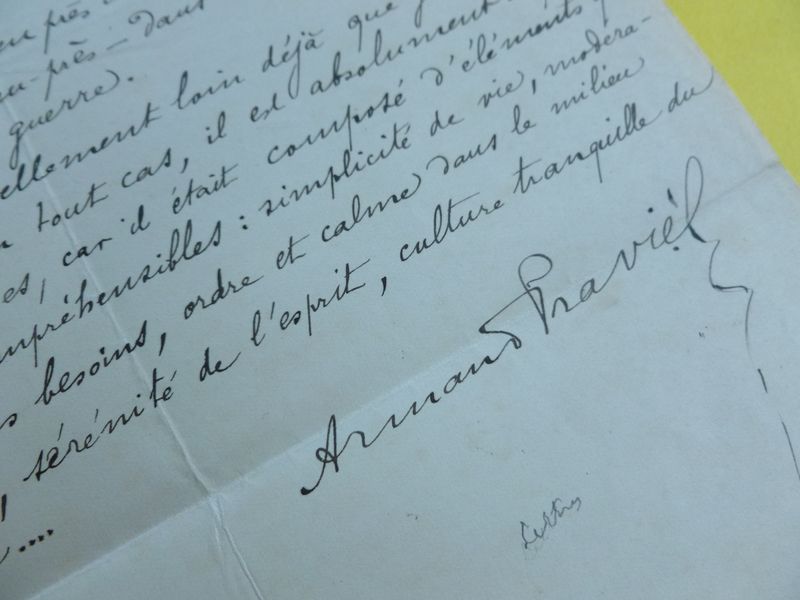 près
peu-près — dans
guerre.
ellement loin déjà que
tout cas, il est absolument
es, car il était composé d'éléments
mpréhensibles : simplicité de vie, modéra-
s besoins, ordre et calme dans le milieu
, sérénité de l'esprit, culture tranquille du
....
Armand Praviel